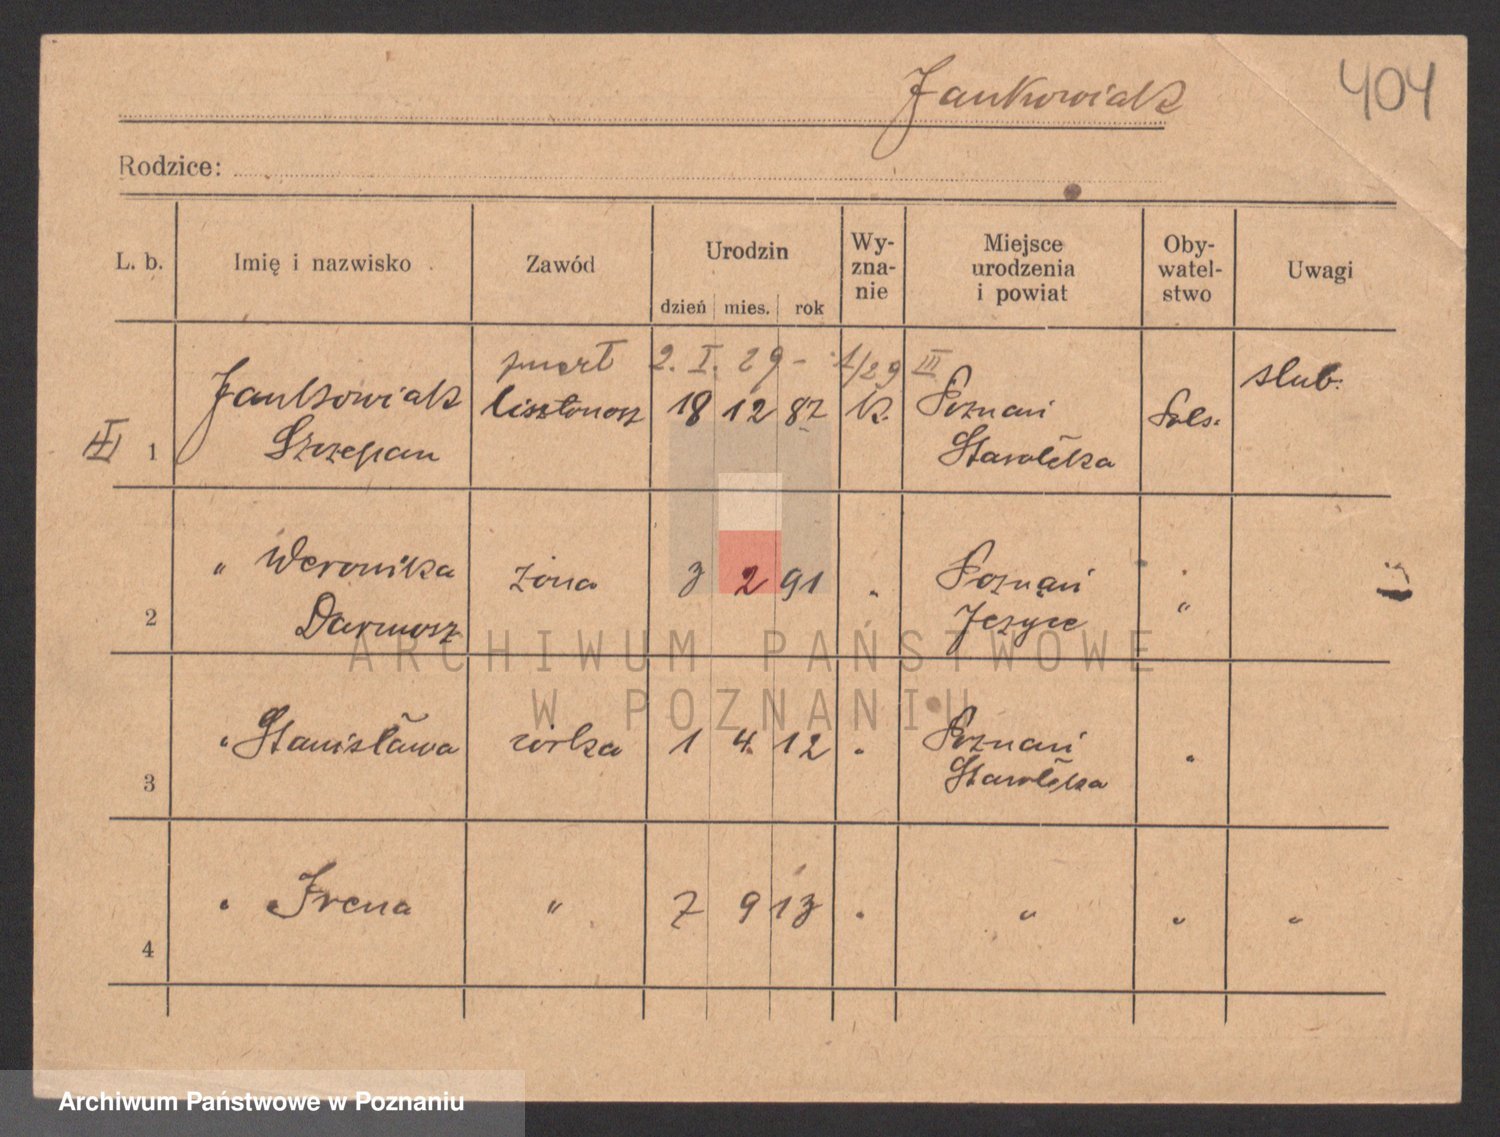 Jankowiak
404
Rodzice:
L. b. Imię i nazwisko Zawód Urodzin dzień mies. rok Wy-zna-nie Miejsce urodzenia i powiat Oby-watel-stwo Uwagi
zmarł 2. I. 29 - 1/29 III
Jankowiak listonosz 18 12 87 k. Poznań Pols. slub.
1 Szczepan Starołęka
" Weronika żona 3 2 91 " Poznań "
2 Darmosz Jeżyce
" Stanisława córka 1 4. 12 " Poznań "
3 Starołęka
" Irena " 7 9 13 " " " "
4
ARCHIWUM PAŃSTWOWE
W POZNANIU
Archiwum Państwowe w Poznaniu